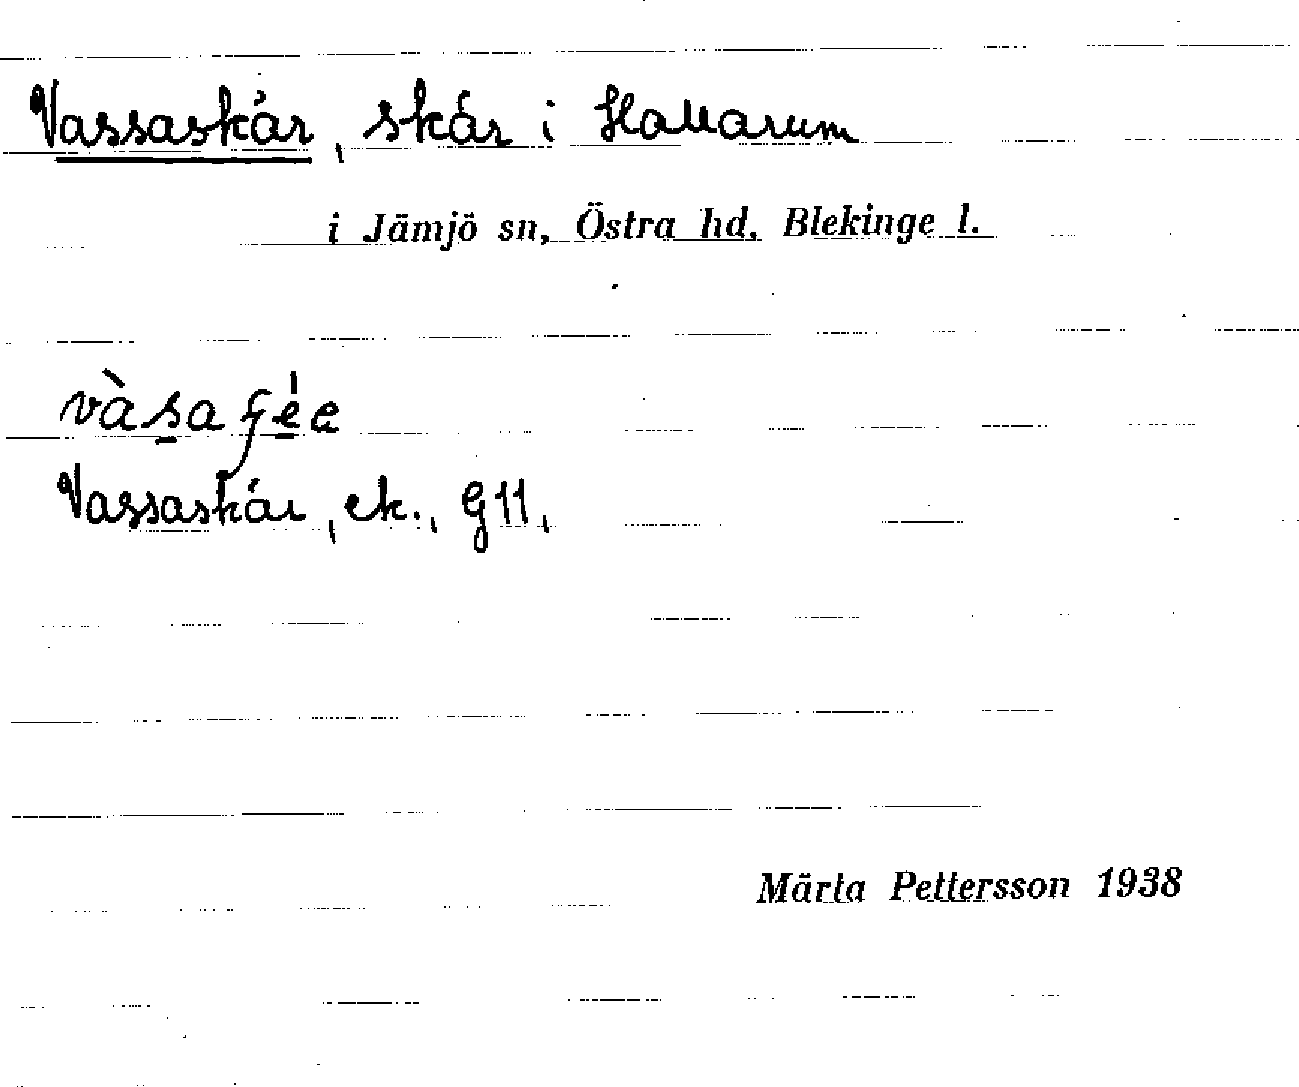 Vassaskär, skär i Hallarum
i Jämjö sn, Östra hd, Blekinge l.
Vassaskär, ek., G11,
Märta Pettersson 1938